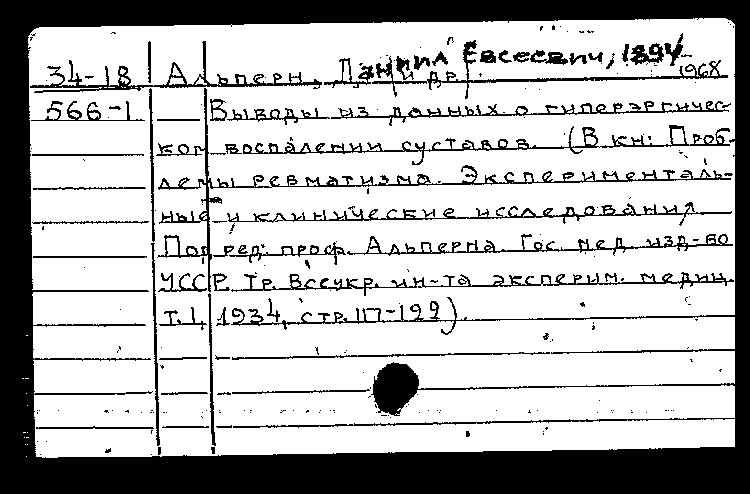 34-18 Альперн, Даниил Евсеевич, 1894
и др. 1968
566-1 Выводы из данных о гиперэргичес-
ком воспалении суставов. (В кн: Проб-
лемы ревматизма. Эксперименталь-
ные и клинические исследования.
Под ред. проф. Альперна. Гос. мед. изд-во
УССР. Тр. Всеукр. ин-та эксперим. медиц.
т. I, 1934, стр. 117-122).